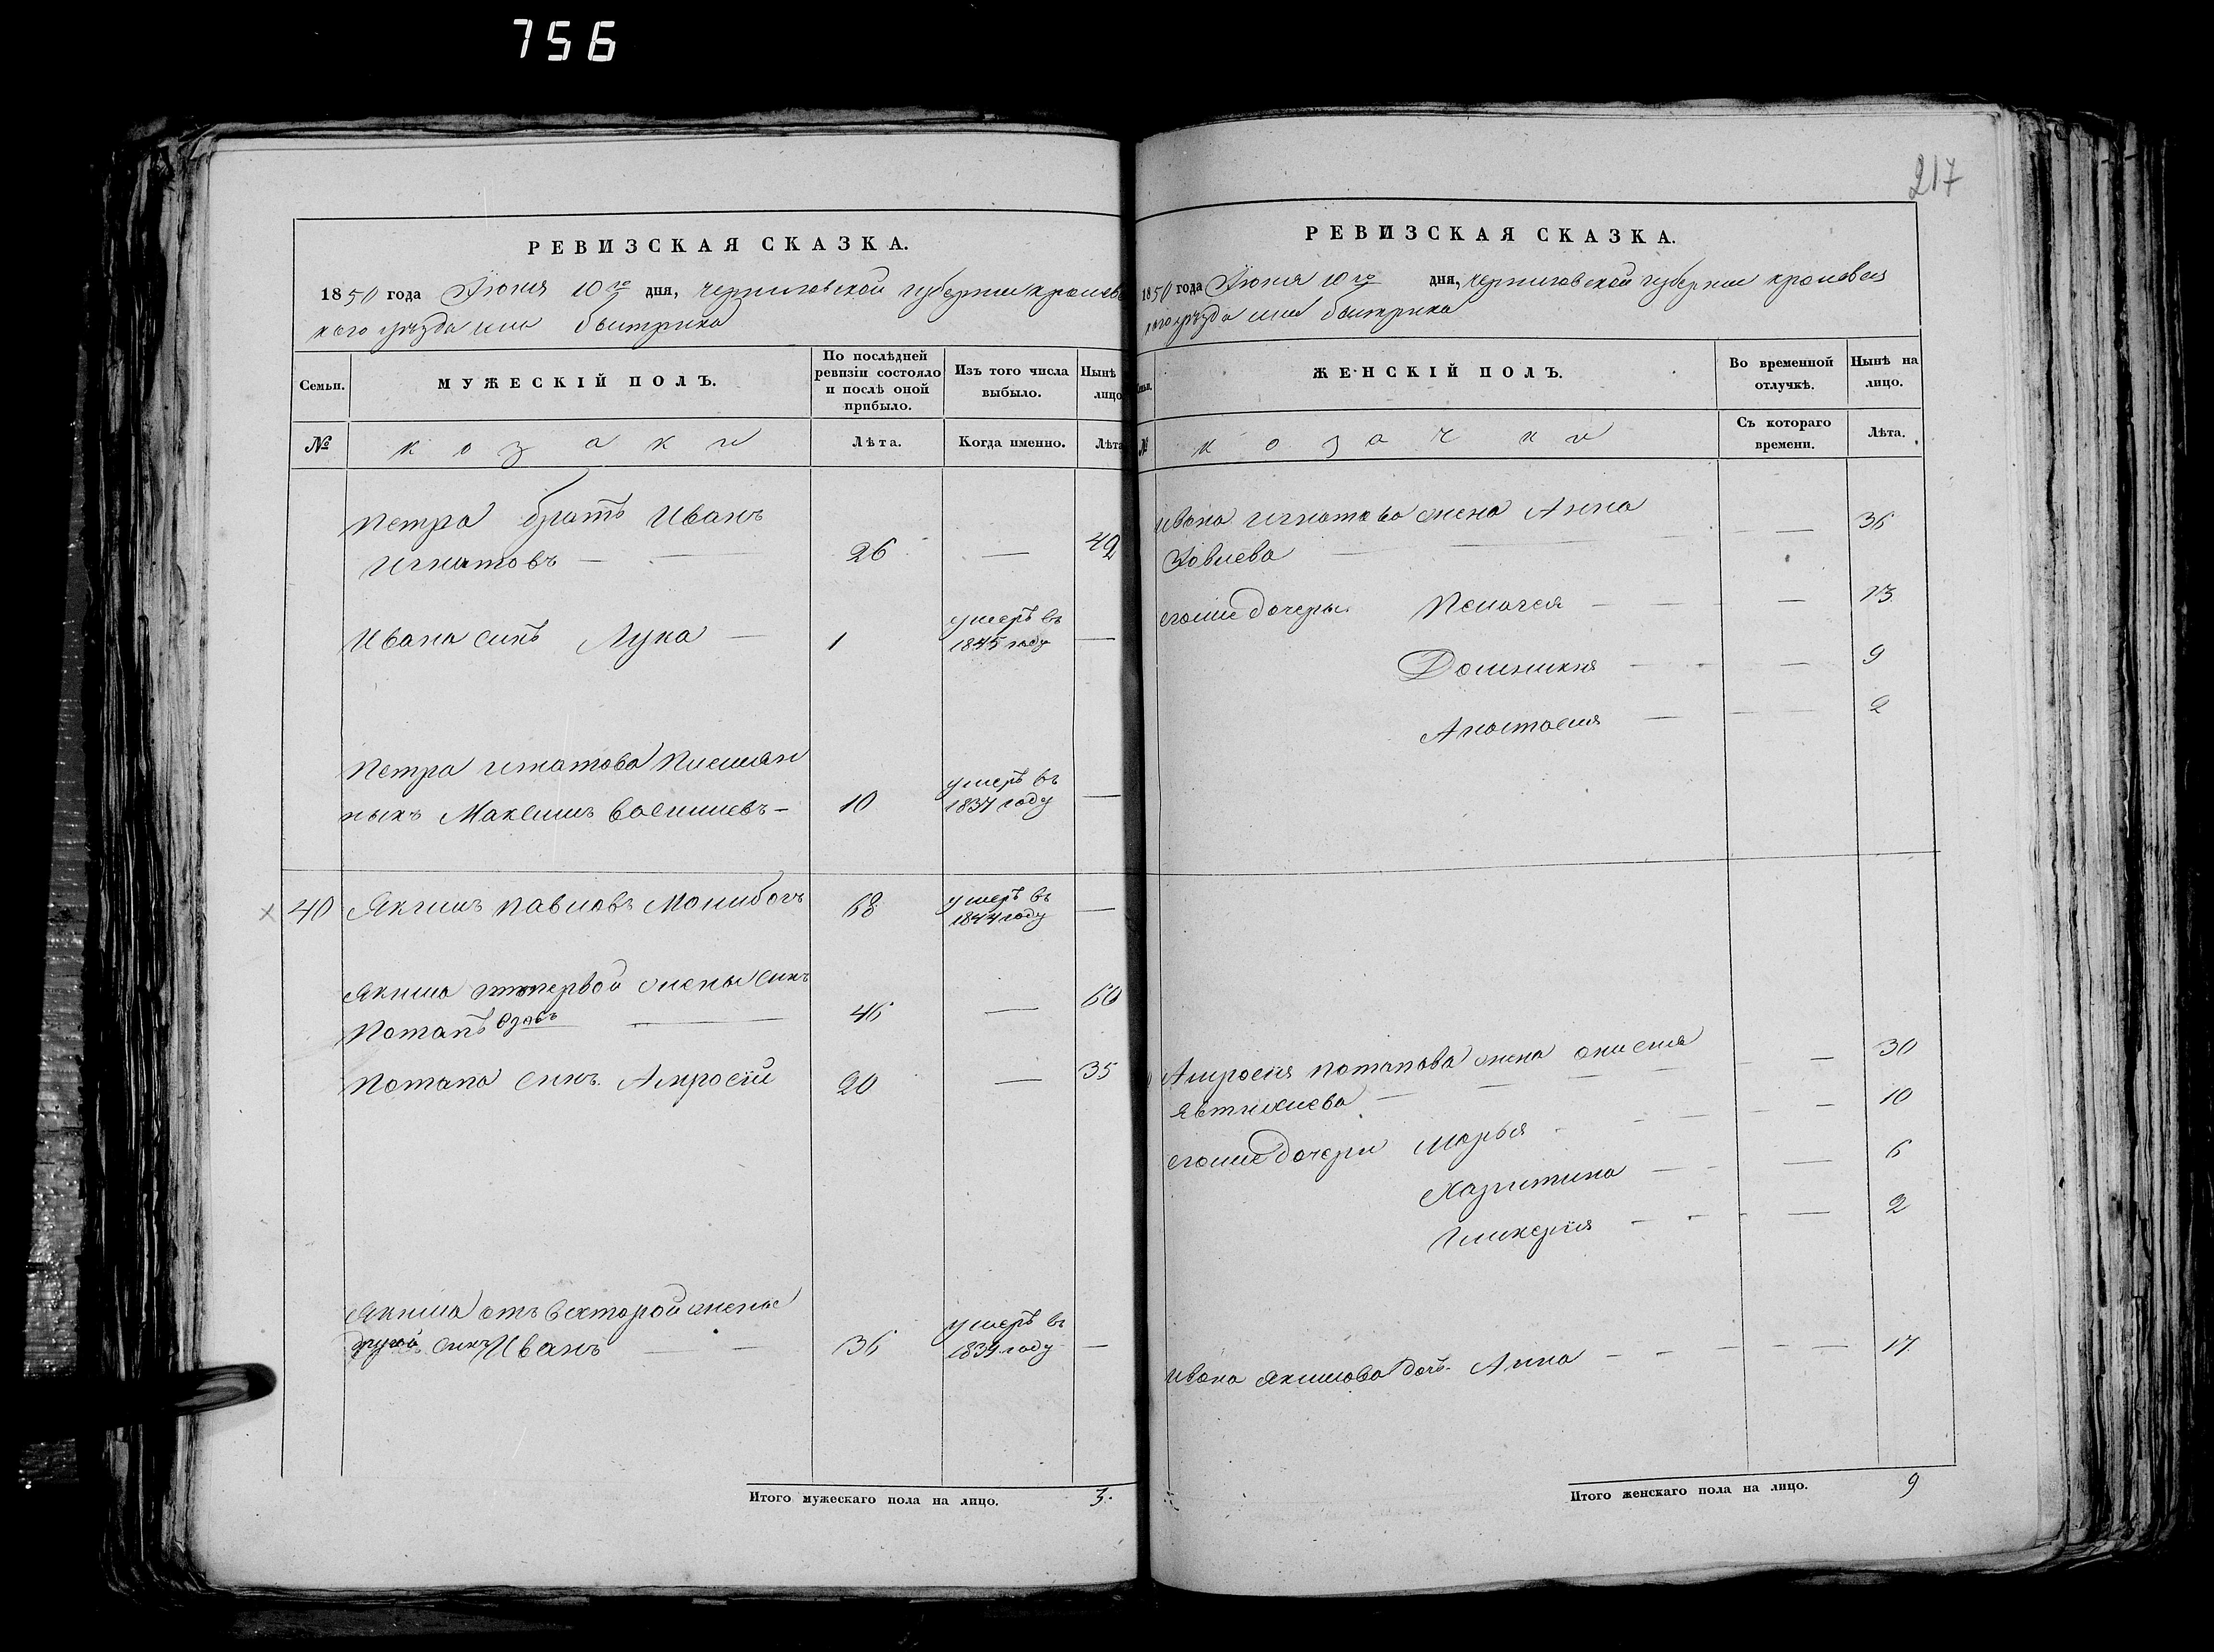 756
217
РЕВИЗСКАЯ СКАЗКА.
1850 года Іюня 10го дня, Черниговской губернии кролеве
кого уезда
Семьи.
МУЖЕСКІЙ ПОЛЪ.
По послѣдней ревизіи состояло и послѣ оной прибыло.
Изъ того числа выбыло.
Нынѣ лицо
№
козаки
Лѣта.
Когда именно.
Лѣта
Петра братъ Иванъ
Игнатовъ — 26 — 42
Ивана синъ Лука — 1 умеръ въ 1845 году —
Петра игнатова племян
ныкъ Максимъ Василиевъ — 10 умеръ въ 1837 году —
40 Якимъ павловъ Молибогъ 68 умеръ въ 1844 году —
Якима первой жены синъ
Потапъ — 46 — 60
Потапа синъ Амросій 20 — 35
Якима отъ вскторой жены
другой синъ Иванъ — 36 умеръ въ 1839 году —
Итого мужескаго пола на лицо. 3.
РЕВИЗСКАЯ СКАЗКА.
1850 года Іюня 10го дня, Черниговской губернии кролевец
кого уезда
ЖЕНСКІЙ ПОЛЪ.
Во временной отлучкѣ.
Нынѣ на лицо.
№
козачки
Съ котораго времени.
Лѣта.
Ивана игнатова жена Анна — 36
Иовлева
егоже дочеры Пелагея — 13
Домникия — 9
Анастасия — 2
Амросия потапова жена Анисия — 30
Явтихиева
егоже дочери Марья — 10
Харитина — 6
Гликерія — 2
Ивана Якимова дочь Анна — 17
Итого женскаго пола на лицо. 9